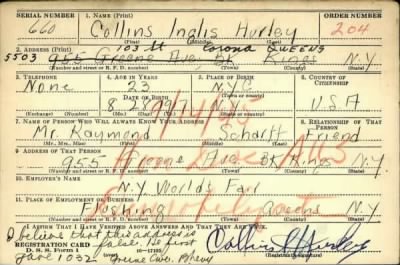 SERIAL NUMBER 1. NAME (Print) ORDER NUMBER
660 Collins Inglis Hurley 204
(First) (Middle) (Last)
103 St Corona QUEENS
2. ADDRESS (Print)
5503 955 Greene Ave. Bk Kings N.Y.
(Number and street or R. F. D. number) (Town) (County) (State)
3. TELEPHONE 4. AGE IN YEARS 5. PLACE OF BIRTH 6. COUNTRY OF CITIZENSHIP
None 23 N.Y.C.
DATE OF BIRTH
8 U.S.A
(Exchange) (Number) (Mo.) (Day) (Yr.) (State or county)
7. NAME OF PERSON WHO WILL ALWAYS KNOW YOUR ADDRESS 8. RELATIONSHIP OF THAT PERSON
Mr. Raymond Scharff Friend
(Mr., Mrs., Miss) (First) (Middle) (Last)
9. ADDRESS OF THAT PERSON
955 Greene Ave Bk Kings N.Y
(Number and street or R. F. D. number) (Town) (County) (State)
10. EMPLOYER'S NAME
N.Y. Worlds Fair
11. PLACE OF EMPLOYMENT OR BUSINESS
Flushing Queens N.Y.
(Number and street or R. F. D. number) (Town) (County) (State)
I AFFIRM THAT I HAVE VERIFIED ABOVE ANSWERS AND THAT THEY ARE TRUE.
I believe that this address is
false. He first
REGISTRATION CARD
D. S. S. Form 1 Collins I Hurley
gave 1032 Greene Ave.